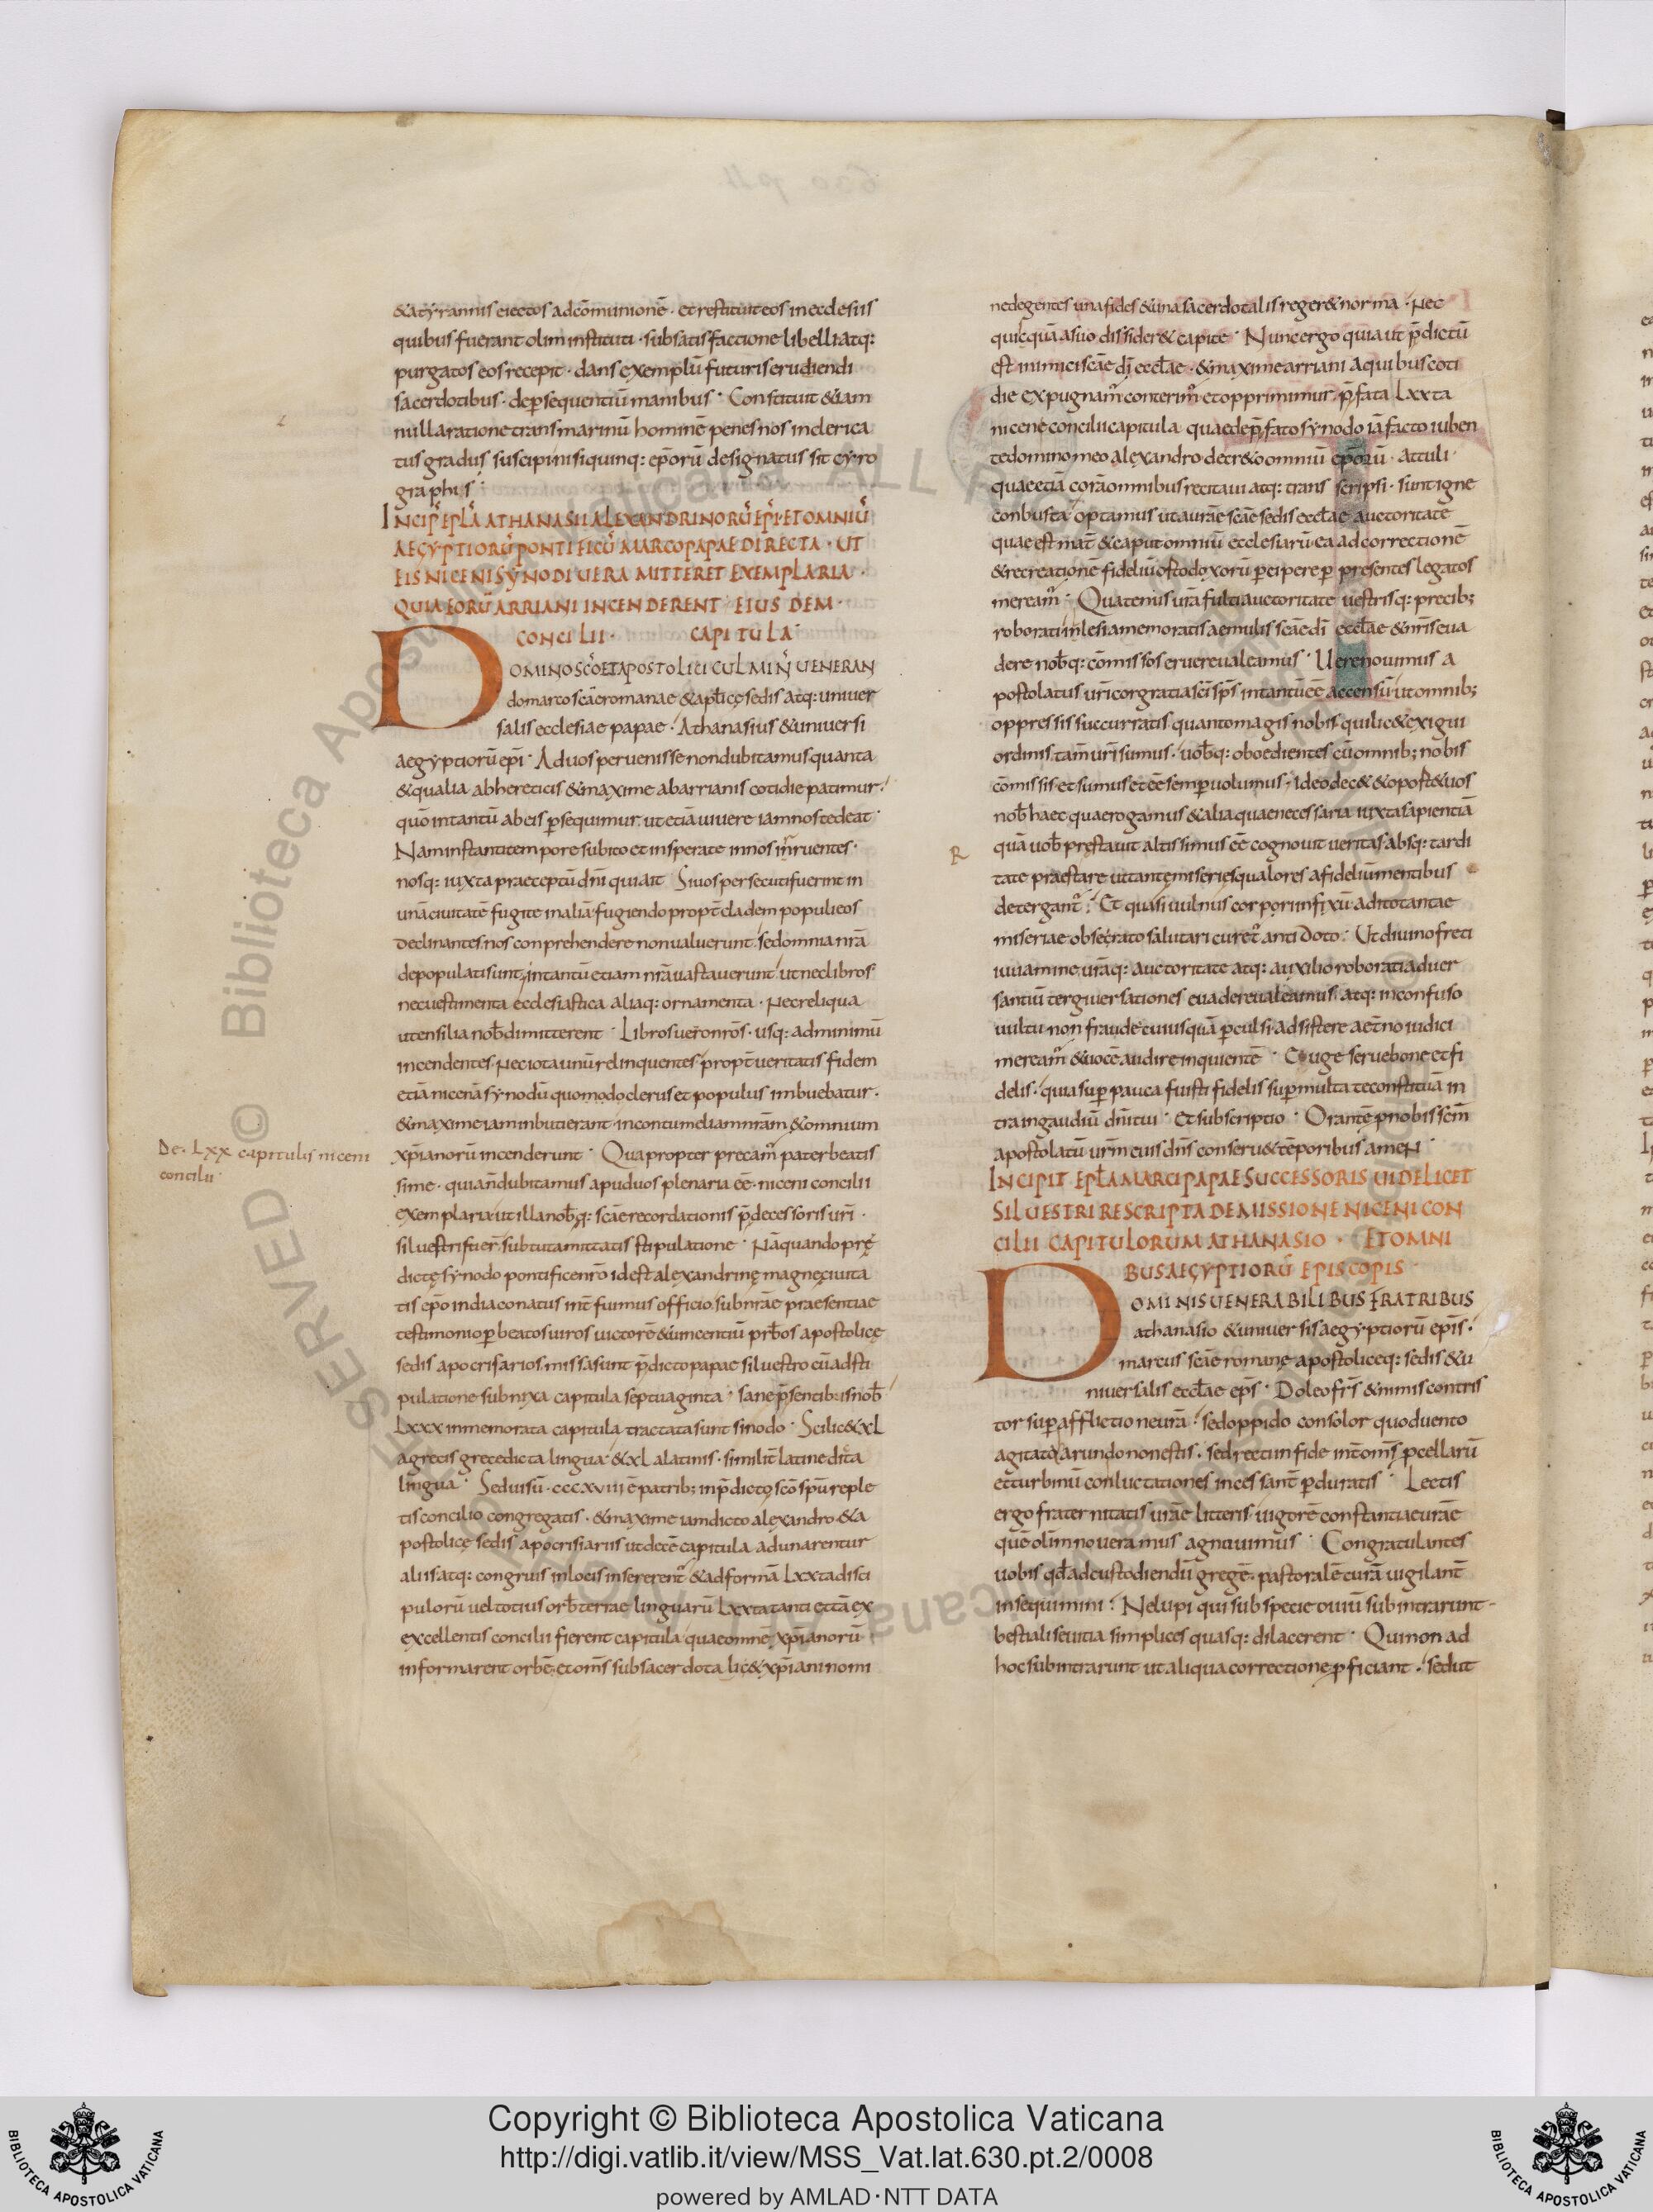 &atyrannis eiectos adcōmunionē · et restituit eos in ecclesiis
quibus fuerant olim instituti · sub satisfactione libelli atq:
purgatos eos recepit · dans exemplū futuris erudiendi
sacerdotibus · de psequentiū manibus · Constituit &iam
nulla ratione transmarinū hominē penes nos in clerica
tus gradus suscipi nisi quinq: epōrū designatus sit cyro
graphis ·
INCIP EPLA ATHANASII ALEXANDRINORŪ EPI · ET OMNIŪ
AEGYPTIORŪ PONTIFICŪ MARCO PAPAE DIRECTA · UT
EIS NICENI SYNODI UERA MITTERET EXEMPLARIA ·
QUIA EORŪ ARRIANI INCENDERENT EIUSDEM ·
CONCILII · CAPITULA ·
DOMINO SCO ET APOSTOLICI CULMINI UENERAN
do marco scae romanae & aplice sedis atq: uniuer
salis ecclesiae papae · Athanasius & uniuersi
aegyptiorū epi · Ad uos peruenisse non dubitamus quanta
& qualia ab hereticis & maxime ab arrianis cotidie patimur ·
quō in tantū ab eis psequimur ut etiā uiuere iam nos tedeat ·
Nam instanti tempore subito et insperate in nos inruentes ·
nosq: iuxta praeceptū dni quia it Si uos persecuti fuerint in
unā ciuitatē fugite in aliā fugiendo propt cladem populi eos
declinantes · nos conprehendere non ualuerunt · sed omnia nrā
depopulati sunt, in tantū etiam nrā uastauerunt ut nec libros
nec uestimenta ecclesiastica aliaq: ornamenta · Nec reliqua
utensilia nob dimitterent · Libros uero nrōs · usq: ad minimū
incendentes · Nec iota unū relinquentes propt ueritatis fidem
etiā nicenā synodū quomodo clerus et populus imbuebatur ·
& maxime iam inbuti erant · in contumeliam nrām & omnium
xpianorū incenderunt · Quapropter precam pater beatis
De · Lxx capitulis niceni
concilii ·
sime · quia n dubitamus apud uos plenaria ēe · niceni concilii
exemplaria ut illa nobq: scāe recordationis pdecessoris uri ·
siluestris fier · sub tutamitatis stipulatione · Nā quando pre
dicte synodo pontifice nrō id est alexandrine magne ciuita
tis epo in diaconatus int fuimus officio, sub nrāe praesentiae
testimonio p beatos uiros uictorē & uincentiū prbos apostolice
sedis apocrisarios missa sunt pdicto papae siluestro cū adsti
pulatione subnixa capitula septuaginta · sane psentib; is nob
Lxxx inmemorata capitula tractata sunt sinodo · Scilic& xL
a grecis grece dicta lingua · & xL a latinis · similit latine dita
lingua · Sed uisū · cccxviii ē patrib; in pdicto scō spu reple
tis concilio congregatis · & maxime iamdicto alexandro & a
postolice sedis apocrisiariis ut dece capitula adunarentur
aliis atq: congruis in locis insererent & ad formā Lxxta disci
pulorū uel totius orb terrae linguarū Lxxta tanti et tā ex
excellentis concilii fierent capitula quae omnē xpianorū
informarent orbē · et oms sub sacerdotali c& xpiani nomi
ne degentes una fides & una sacerdotalis reger& norma · Nec
quicquā a suo dissider& capite · Nunc ergo quia ut pdictū
est inimici scāe di eccłae · & maxime arriani a quibus coti
die expugnam conterim et opprimimur · pfata Lxxta
nicene concilii capitula quae de pfato synodo iā facto iuben
te domino meo alexandro decr&o omniū epōrū · attuli ·
quae etiā corā omnibus recitaui atq: transscripsi · sunt igne
conbusta optamus ut a urāe scāe sedis eccłae auctoritate
quae est mat & caput omniū ecclesiarū · ea ad correctionē
& recreationē fideliū ostodoxorū pcipere p presentes legatos
meream · Quatenus urā fulti auctoritate uestrisq: precib;
roborati inlesi a memoratis aemulis scāe di eccłae & nris eua
dere nobq: cōmissos eruere ualeamus · Uere nouimus a
postolatus uri cor gratia sci sps in tantū ēe accensū ut omnib;
oppressis succurratis quanto magis nobis qui lic& exigui
ordinis, tam uri sumus · uobq: oboedientes cū omnib; nobis
cōmissis · et sumus et ēe semp uolumus · Ideo dec& & opost& uos
nob haec quae rogamus & alia quae necessaria iuxta sapientiā
quā uob prestauit altissimus ēe cognouit ueritas absq: tardi
R
tate praestare ut tante miserie squalores a fideliū mentibus
detergant · Et quasi uulnus corpori infixū ad ito tantae
miseriae obsecrato salutari curet antidoto · Ut diuino freti
iuuamine urāq: auctoritate atq: auxilio roborati aduer
santiū tergiuersationes euadere ualeamus atq: inconfuso
uultu non fraude cuiusquā pculsi adsistere aetno iudici
meream & uocē audire inquientē · Euge serue bone et fi
delis · quia sup pauca fuisti fidelis sup multa te constituā in
tra in gaudiū dni tui · Et subscriptio · Orantē p nobis scm
apostolatū urm eius dns conseru& tēporibus amen ·
INCIPIT EPŁA MARCI PAPAE SUCCESSORIS UIDELICET
SILUESTRI RESCRIPTA DE MISSIONE NICENI CON
CILII CAPITULORUM ATHANASIO · ET OMNI
BUS AEGYPTIORŪ EPISCOPIS ·
DOMINIS UENERABILIBUS FRATRIBUS
athanasio & uniuersis aegyptiorū epis ·
marcus scāe romane apostoliceq: sedis & u
niuersalis eccłae eps · Doleo frs & nimis contris
tor sup afflictione urā · sed oppido consolor quod uento
agitata arundo non estis · sed recti in fide int oms pcellarū
et turbinū conluctationes incessant pduratis · Lectis
ergo fraternitatis urāe litteris, uigorē constantiae urāe
quē olim noueramus agnouimus · Congratulantes
uobis qd ad custodiendū gregē pastoralē curā uigilant
insequimini · Ne lupi qui sub specie ouiū subintrarunt
bestiali seuitia simplices quasq: dilacerent · Qui non ad
hoc subintrarunt ut aliqua correctione pficiant · sed ut
Copyright © Biblioteca Apostolica Vaticana
http://digi.vatlib.it/view/MSS_Vat.lat.630.pt.2/0008
powered by AMLAD·NTT DATA
BIBLIOTECA APOSTOLICA VATICANA
BIBLIOTECA APOSTOLICA VATICANA